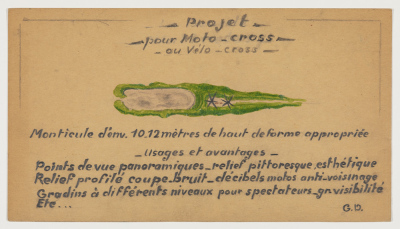 Projet
pour Moto-cross
ou Vélo-cross
Monticule d'env. 10.12 mètres de haut de forme appropriée
Usages et avantages
Points de vue panoramiques_relief pittoresque, esthétique
Relief profilé coupe-bruit_décibels motos anti-voisinage
Gradins à différents niveaux pour spectateurs_gr. visibilité
Etc...
G.D.